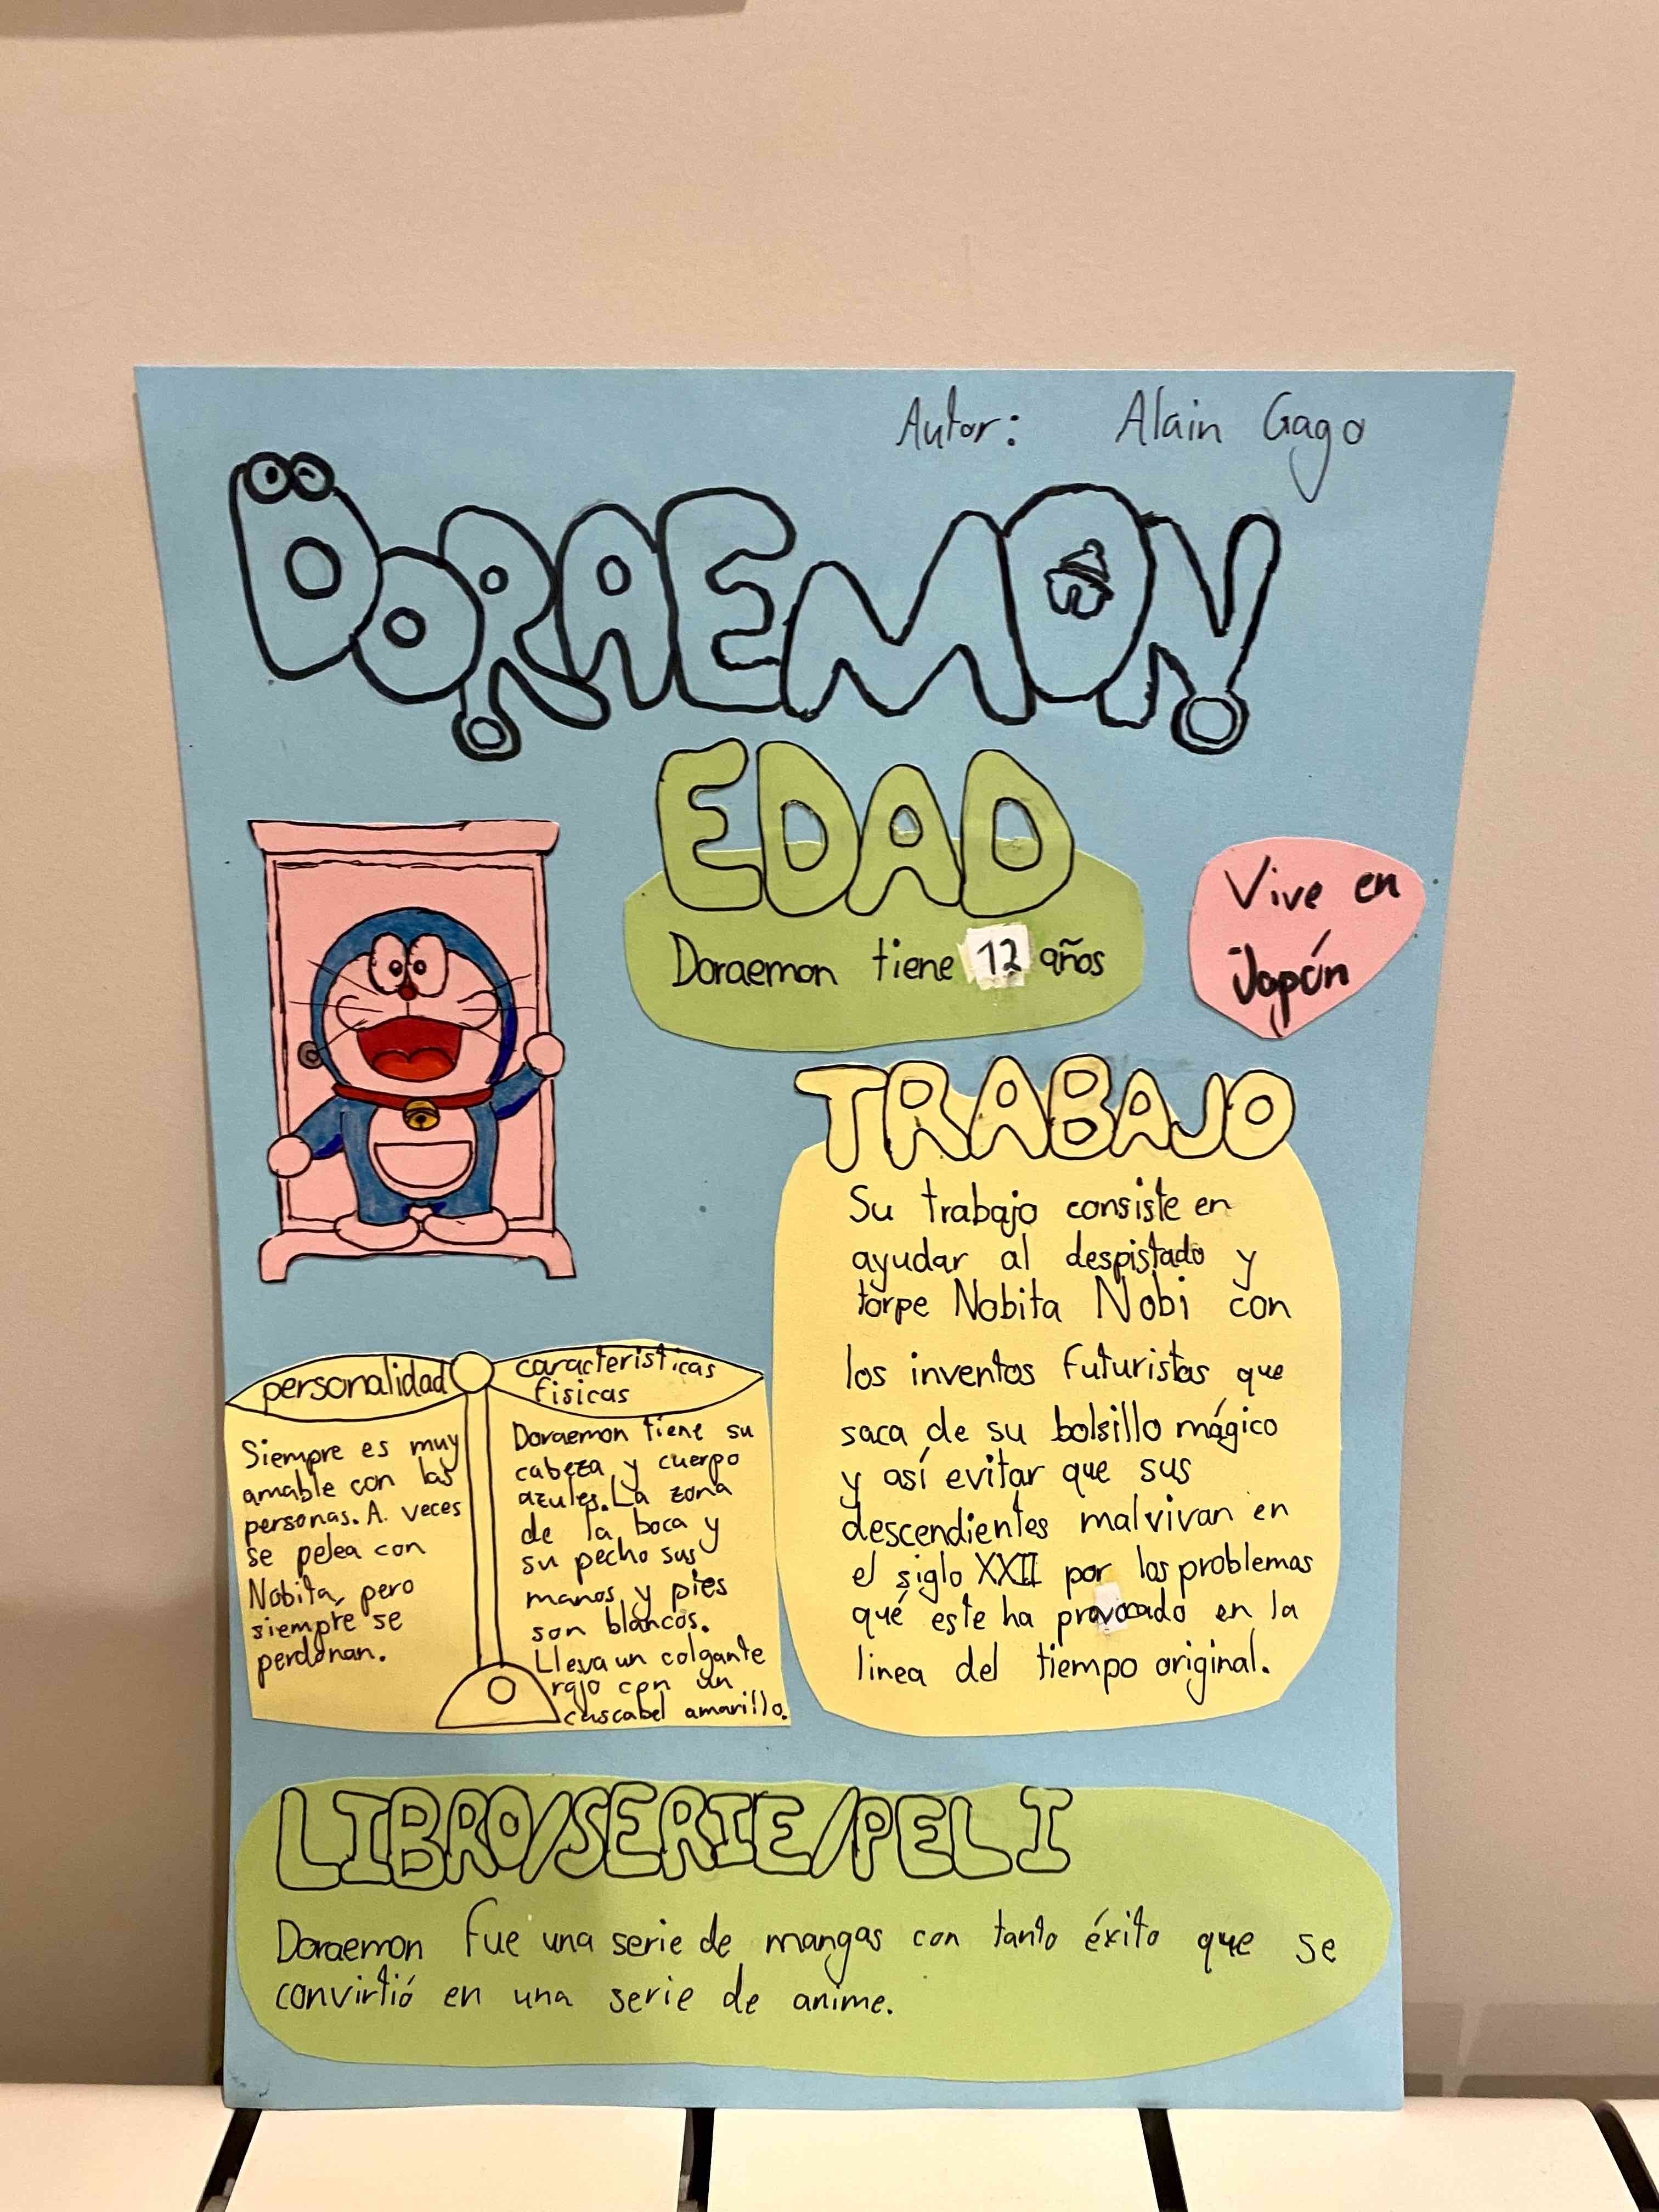 Autor: Alain Gago
DORAEMON
EDAD
Doraemon tiene 12 años
Vive en
Japón
TRABAJO
Su trabajo consiste en
ayudar al despistado y
torpe Nobita Nobi con
los inventos futuristas que
saca de su bolsillo mágico
y así evitar que sus
descendientes malvivan en
el siglo XXII por los problemas
qué este ha provocado en la
linea del tiempo original.
personalidad
Siempre es muy
amable con las
personas. A veces
se pelea con
Nobita, pero
siempre se
perdonan.
caracteristicas
fisicas
Doraemon tiene su
cabeza y cuerpo
azules. La zona
de la boca y
su pecho sus
manos y pies
son blancos.
Lleva un colgante
rojo con un
cascabel amarillo.
LIBRO/SERIE/PELI
Doraemon fue una serie de mangas con tanto éxito que se
convirtió en una serie de anime.